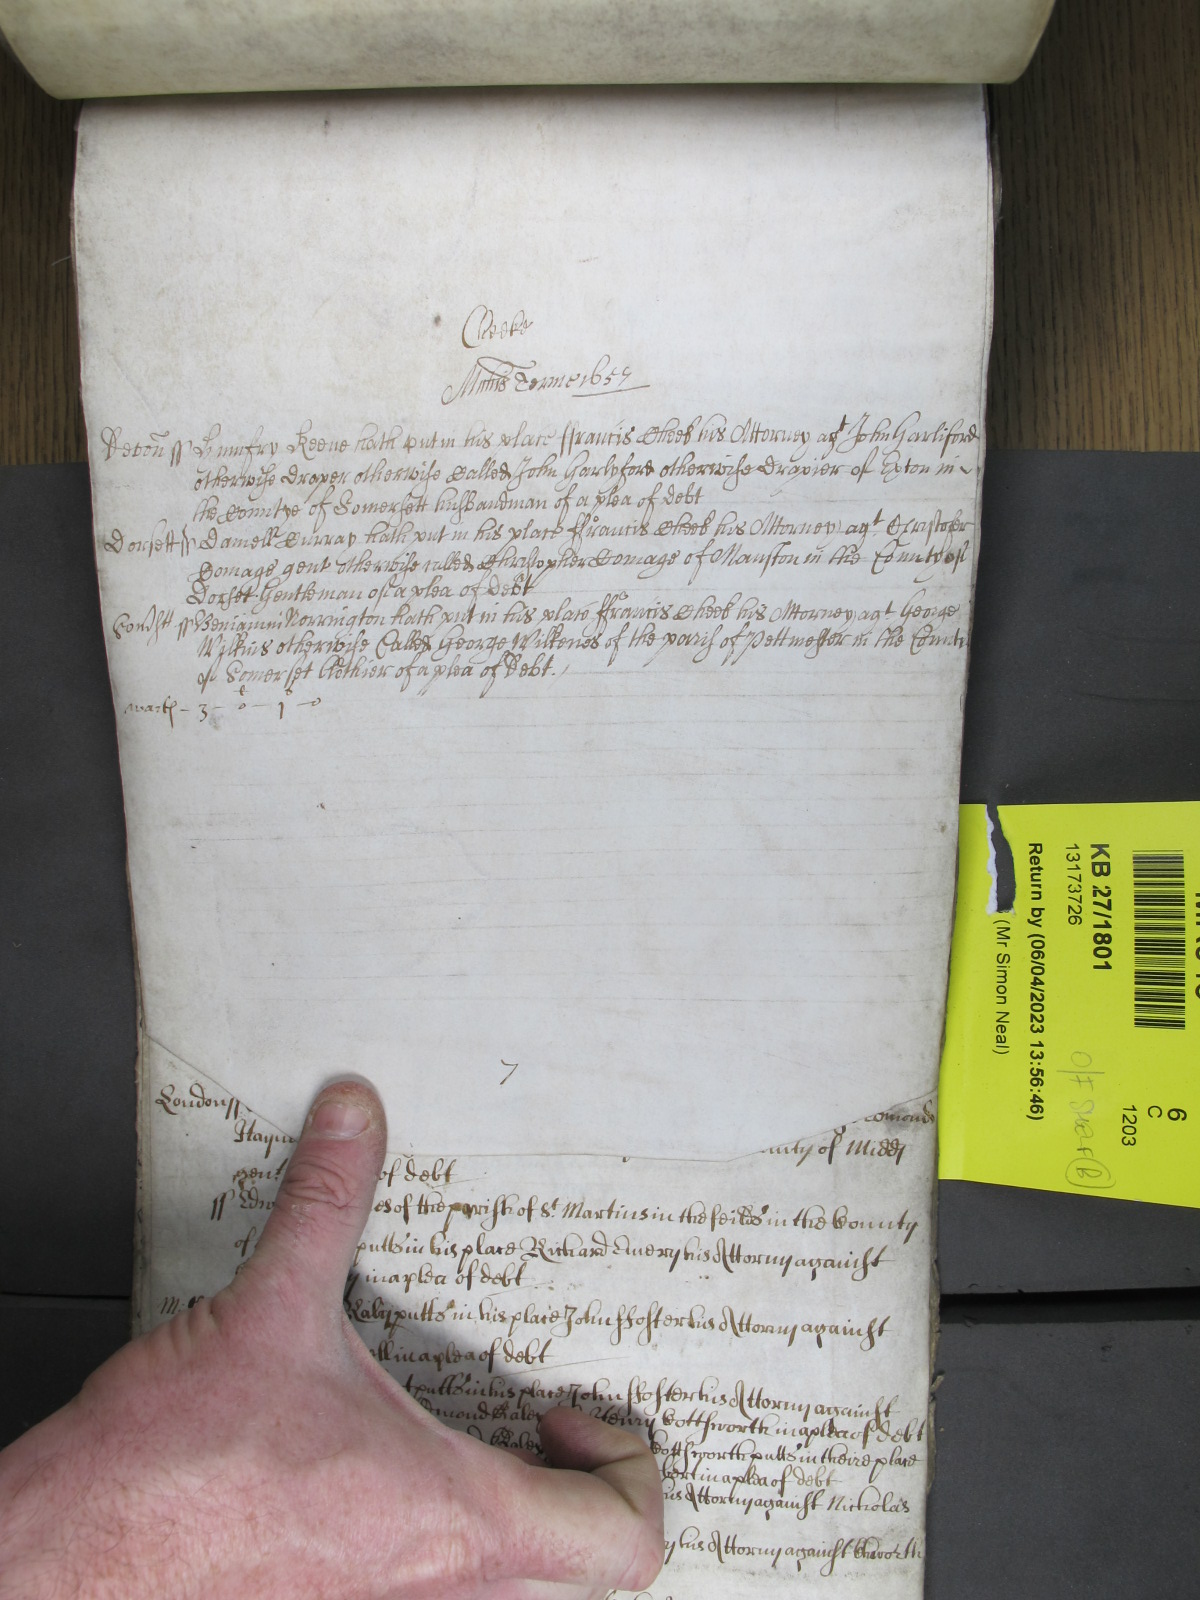 Cheeke
Michis Terme 1657
Devon ss Humfry Keene hath put in his place ffrancis Cheek his Attorney agt John Garliford
otherwise Draper otherwise Called John Garlyford otherwise Drapier of Exton in
the Countye of Somersett husbandman of a plea of debt
Dorsett ss Daniell Curray hath put in his place ffrancis Cheek his Attorney agt Cristofer
Domage gent otherwise called Christopher Domage of Manston in the County of
Dorset Gentleman of a plea of Debt
Somsett ss Beniamin Norrington hath put in his place ffrancis Cheek his Attorney agt George
Wilkins otherwise Called George Wilkenes of the parish of Pettmester in the County
of Somerset Clothier of a plea of Debt.
3 - 0 - 1 - 0
7
London ss
Edmond
unty of Midd
gent of debt
ss es of the parish of St Martins in the feilds in the County
of putts in his place Richard Emery his Attorny against
in a plea of debt
Raly putts in his place John ffoster his Attorny against
ll in a plea of debt
t putts in his place John ffoster his Attorny against
dmond Raley Henry Cottsworth in a plea of debt
Raley Cottsworth putts in theire place
bert in a plea of debt
his Attorny against Nicholas
y his Attorny against
KB 27/1801
13173726
Return by (06/04/2023 13:56:46)
(Mr Simon Neal)
6
C
1203